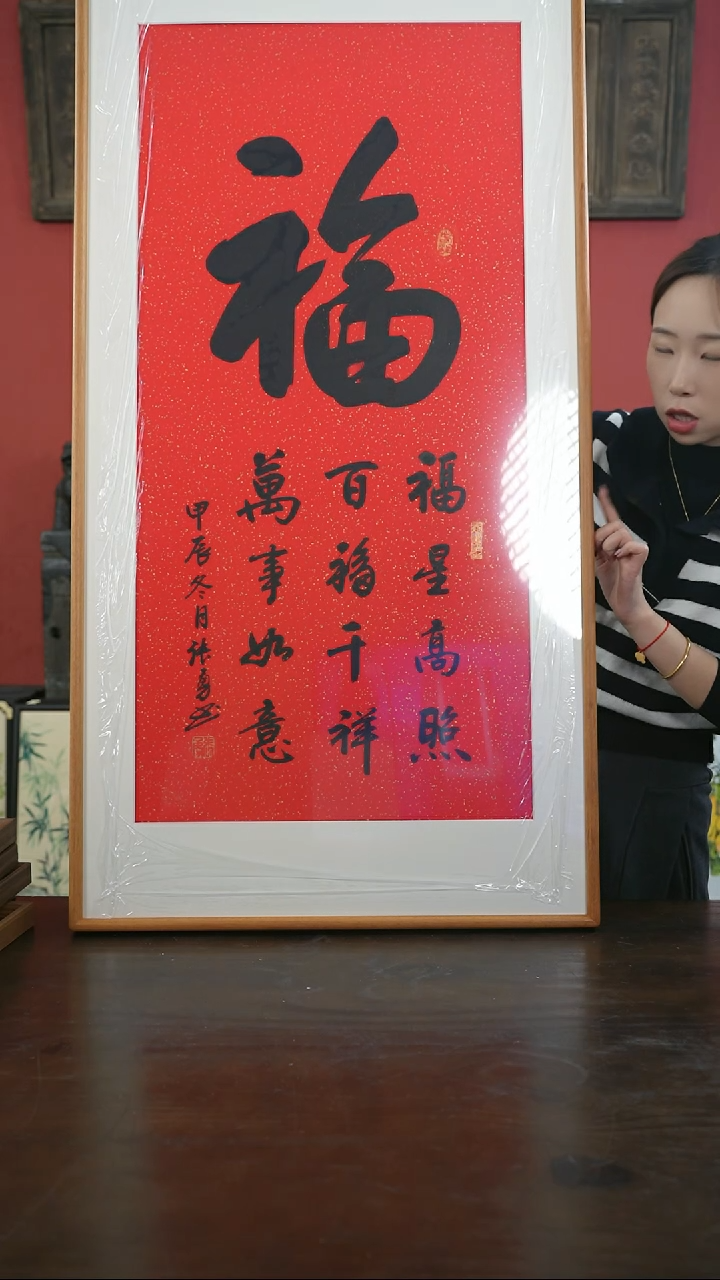 福
福星高照
百福千祥
萬事如意
甲辰冬月张勇书